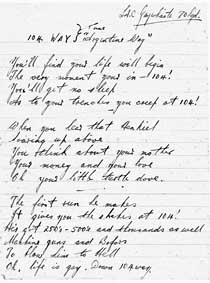 Tune
10A. WAY "Argentine Way"
You'll find your life will begin
The very moment your in 10A!
You'll get no sleep
As to your trenches you creep at 10A!
When you hear that Heinkel
soaring up above
You think about your mother
Your money and your love
Oh, your little turtle dove.
The first run he makes
It gives you the shakes at 10A!
He's got 250's - 500's and thousands as well
Machine guns and Bofors
To blow him to Hell
Oh, life is gay. Down 10A way.